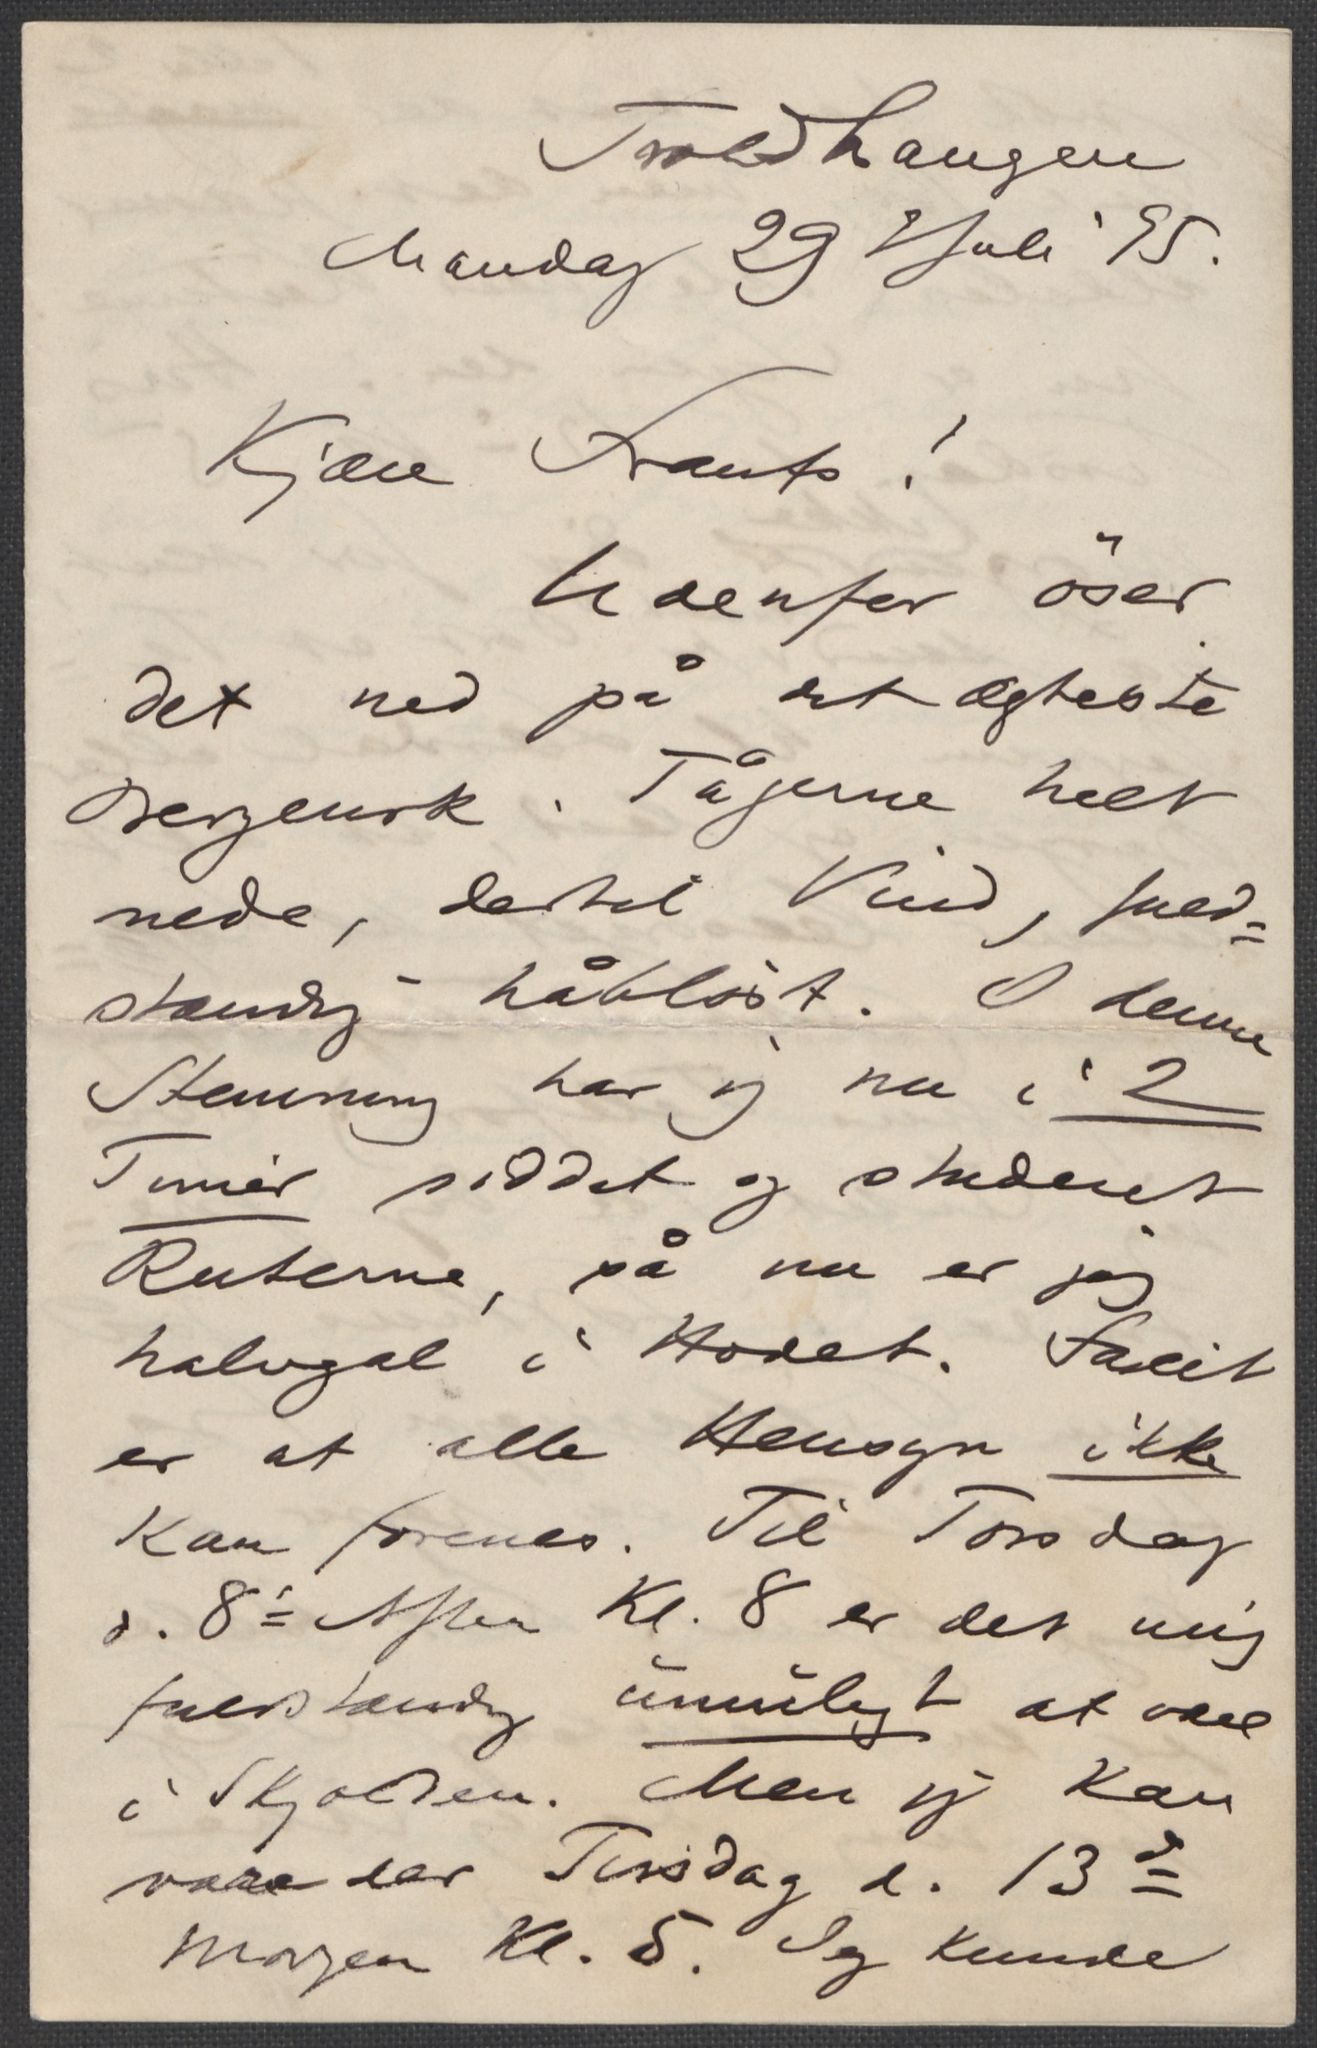 Troldhaugen
Mandag 29 Juli '95.
Kjære Frants!
Udenfor öser
det ned på det ægteste
Bergensk. Tågerne helt
nede, dertil Vind, fuld=
stændig håblöst. I denne
Stemning har jeg nu i 2
Timer siddet og studeret
Ruterne, så nu er jeg
halvgal i Hodet. Facit
er at alle Hensyn ikke
kan forenes. Til Torsdag
d. 8de Aften Kl. 8 er det mig
fuldstændig umuligt at være
i Skjolden. Men jeg kan
være der Tirsdag d. 13de
Morgen Kl. 5. Jeg kunde